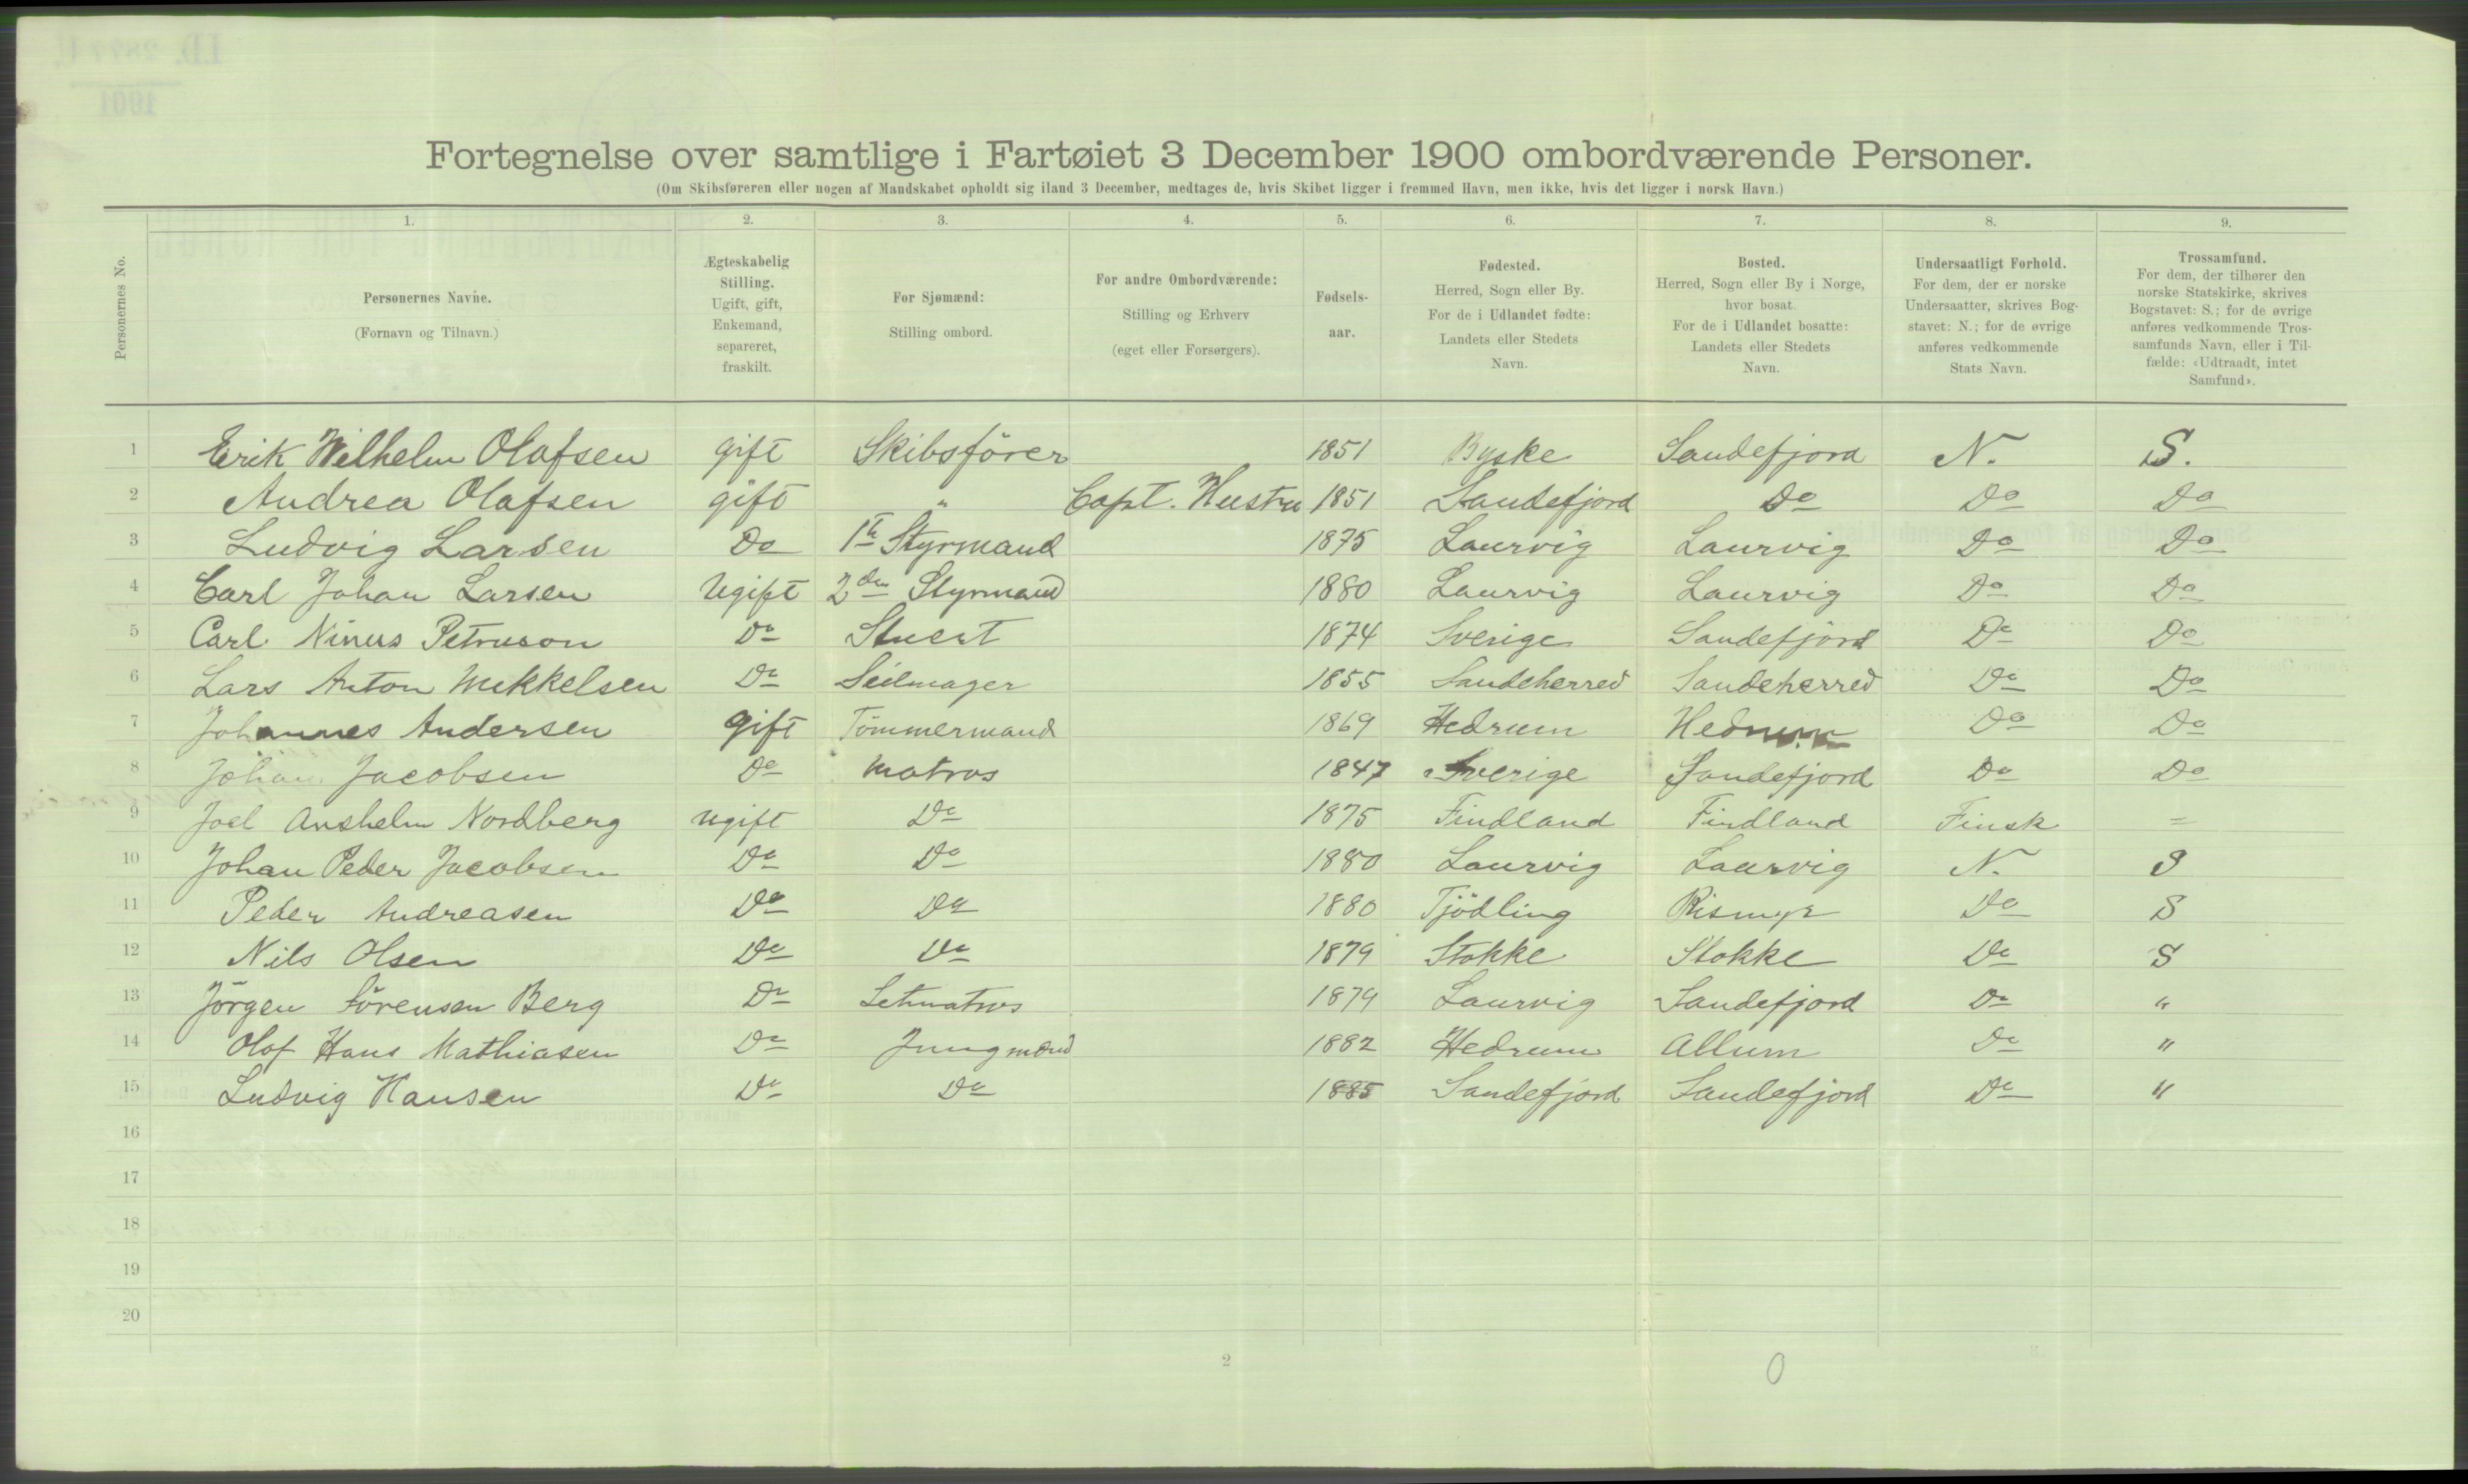 Fortegnelse over samtlige i Fartøiet 3 December 1900 ombordværende Personer.
(Om Skibsføreren eller nogen af Mandskabet opholdt sig iland 3 December, medtages de, hvis Skibet ligger i fremmed Havn, men ikke, hvis det ligger i norsk Havn.)
1. 2. 3. 4. 5. 6. 7. 8. 9.
Personernes No.
Personernes Navne.
(Fornavn og Tilnavn.)
Ægteskabelig
Stilling.
Ugift, gift,
Enkemand,
separeret,
fraskilt.
For Sjømænd:
Stilling ombord.
For andre Ombordværende:
Stilling og Erhverv
(eget eller Forsørgers).
Fødsels-
aar.
Fødested.
Herred, Sogn eller By.
For de i Udlandet fødte:
Landets eller Stedets
Navn.
Bosted.
Herred, Sogn eller By i Norge,
hvor bosat.
For de i Udlandet bosatte:
Landets eller Stedets
Navn.
Undersaatligt Forhold.
For dem, der er norske
Undersaatter, skrives Bog-
stavet: N.; for de øvrige
anføres vedkommende
Stats Navn.
Trossamfund.
For dem, der tilhører den
norske Statskirke, skrives
Bogstavet: S.; for de øvrige
anføres vedkommende Tros-
samfunds Navn, eller i Til-
fælde: «Udtraadt, intet
Samfund».
1 Erik Wilhelm Olafsen gift Skibsförer 1851 Byske Sandefjord N. S.
2 Andrea Olafsen gift " Capt. Hustru 1851 Sandefjord Do Do Do
3 Ludvig Larsen Do 1te Styrmand 1875 Laurvig Laurvig Do Do
4 Carl Johan Larsen Ugift 2den Styrmand 1880 Laurvig Laurvig Do Do
5 Carl Ninus Petruson Do Stuert 1874 Sverige Sandefjord Do Do
6 Lars Anton Mikkelsen Do Seilmager 1855 Sandeherred Sandeherred Do Do
7 Johannes Andersen gift Tömmermand 1869 Hedrum Hedrum Do Do
8 Johan Jacobsen Do Matros 1847 Sverige Sandefjord Do Do
9 Joel Anshelm Nordberg ugift Do 1875 Findland Findland Finsk =
10 Johan Peder Jacobsen Do Do 1880 Laurvig Laurvig N. S
11 Peder Andreasen Do Do 1880 Tjödling Rismyr Do S
12 Nils Olsen Do Do 1879 Stokke Stokke Do S
13 Jörgen Sörensen Berg Do Letmatros 1879 Laurvig Sandefjord Do "
14 Olaf Hans Mathiasen Do Jungmand 1882 Hedrum Allum Do "
15 Ludvig Hansen Do Do 1885 Sandefjord Sandefjord Do "
16
17
18
19
20
2
0